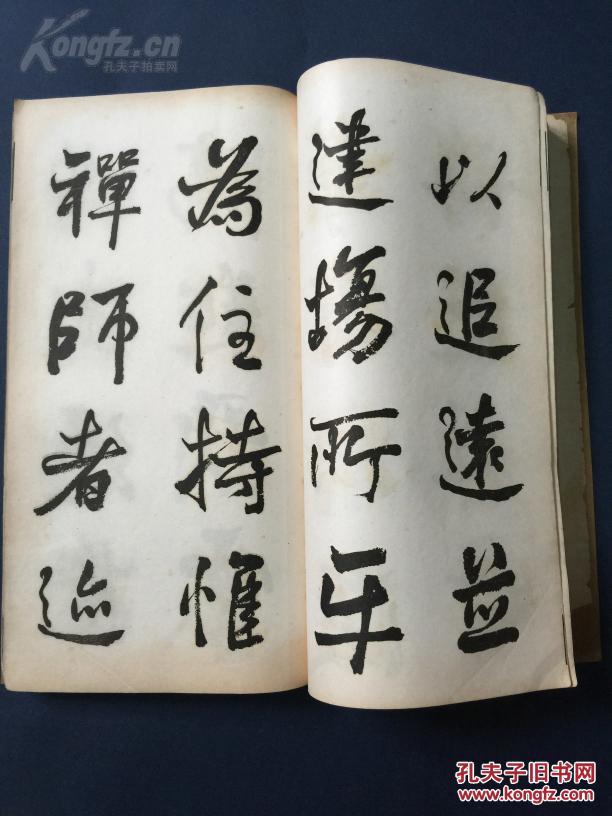 以追遠並
建場所
為住持惟
禪師者迹
Kongfz.cn
孔夫子拍卖网
孔夫子旧书网
www.kongfz.com